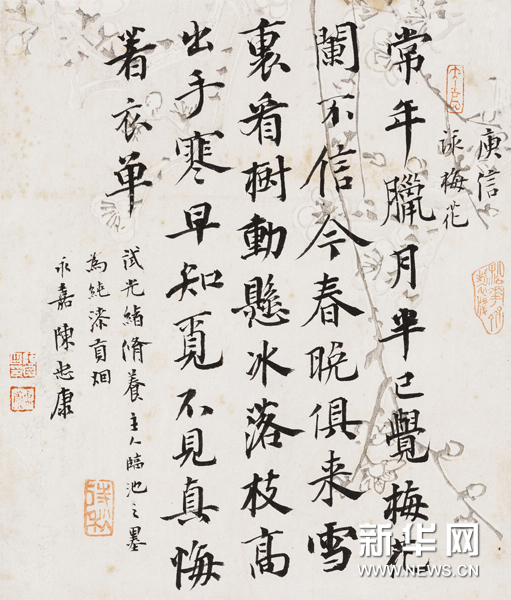 庾信
詠梅花
常年臘月半已覺梅花
闌不信今春晚俱来雪
裏看樹動懸冰落枝高
出手寒早知覓不見真悔
著衣单
試光緒脩養主人臨池之墨
為純漆貢烟
永嘉陳忠康
新华网
WWW.NEWS.CN